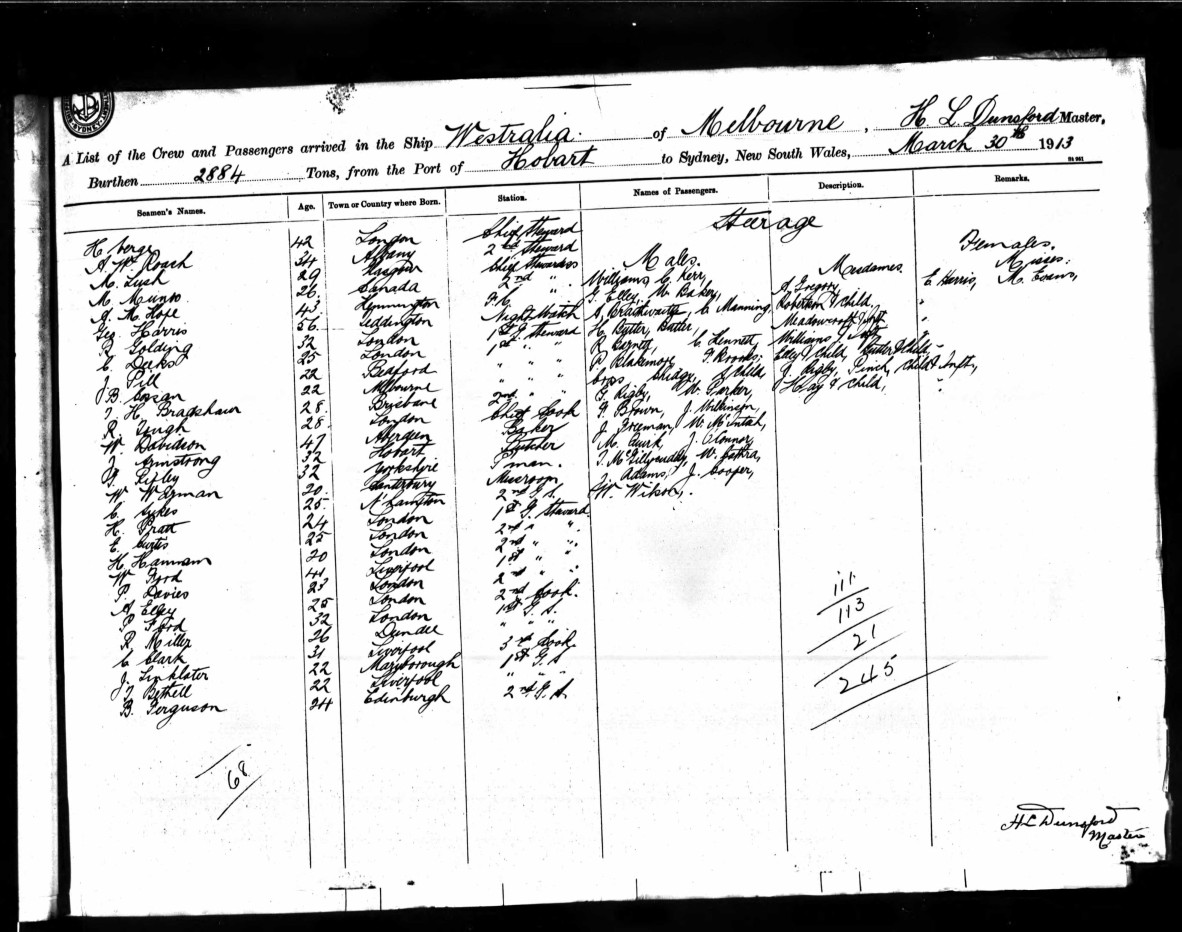 A List of the Crew and Passengers arrived in the Ship Westralia. of Melbourne, H. L. Dunsford Master,
Burthen 2884 Tons, from the Port of Hobart to Sydney, New South Wales, March 30th 1913
Seamen's Names. Age. Town or Country where Born. Station. Names of Passengers. Description. Remarks.
Steerage
Males. Mesdames. Females. Misses.
42 London Chief Steward
A. W. Roach 34 Albany 2nd Steward
M. Lush 29 Glasgow Chief Stewardess
M. Munro 26. Canada 2nd " "
A. M. Hope 43. Kennington
Geo. Harris 56. Teddington Night Watch
R. Golding 32 London 1st G. Steward
C. Deeks 25 London 1st " "
J. Pill 22 Seaford " " "
B. 22 Melbourne " " "
J. H. Bradshaw 28. Brisbane 2nd " "
R. Gough 28. London Chief Cook
W. Davidson 47 Aberdeen Baker
J. Armstrong 32 Hobart Butcher
32 Yorkshire P'man.
W. Wyman 20 Canterbury Messroom
C. Sykes 25. N'hampton 2nd G. S.
H. Pratt 24 London 1st G. Steward
E. Curtis 25 London 2nd " "
H. Hannam 20 London 2nd " "
W. Ford 41 Liverpool 1st " "
P. Davies 23 London 2nd " "
A. Elley 25 London 2nd Cook.
P. Ford 32 London 1st G. S.
R. Miller 26 Dundee " " "
C. Clark 31 Liverpool 3rd Cook
J. Linklater 22 Maryborough 1st G. S
J. Bethell 22 Liverpool " " "
B. Ferguson 24 Edinburgh 2nd G. S.
68
Williams, C. Kerr,
T. Elley, W. Baker,
S. Braithwaite, C. Manning,
H. Butter, Butter,
R. Garnett, C. Lennett,
P. Blakemore, F. Brooks,
G. Rigby, W. Parker,
F. Brown, J. Wilkinson,
J. Freeman, W. McIntosh,
M. Quirk, J. O'Connor,
J. Adams, J. Cooper,
W. Wilson,.
A Gregory,
Robertson & child,
Meadowcroft & Inft
Williams & Inft
Elley & Child, Butter & Child
G. Rigby, Pinch, child & Inft,
Hay & child,
E Harris, M. Evans,
111.
113
21
245
HL Dunsford
Master